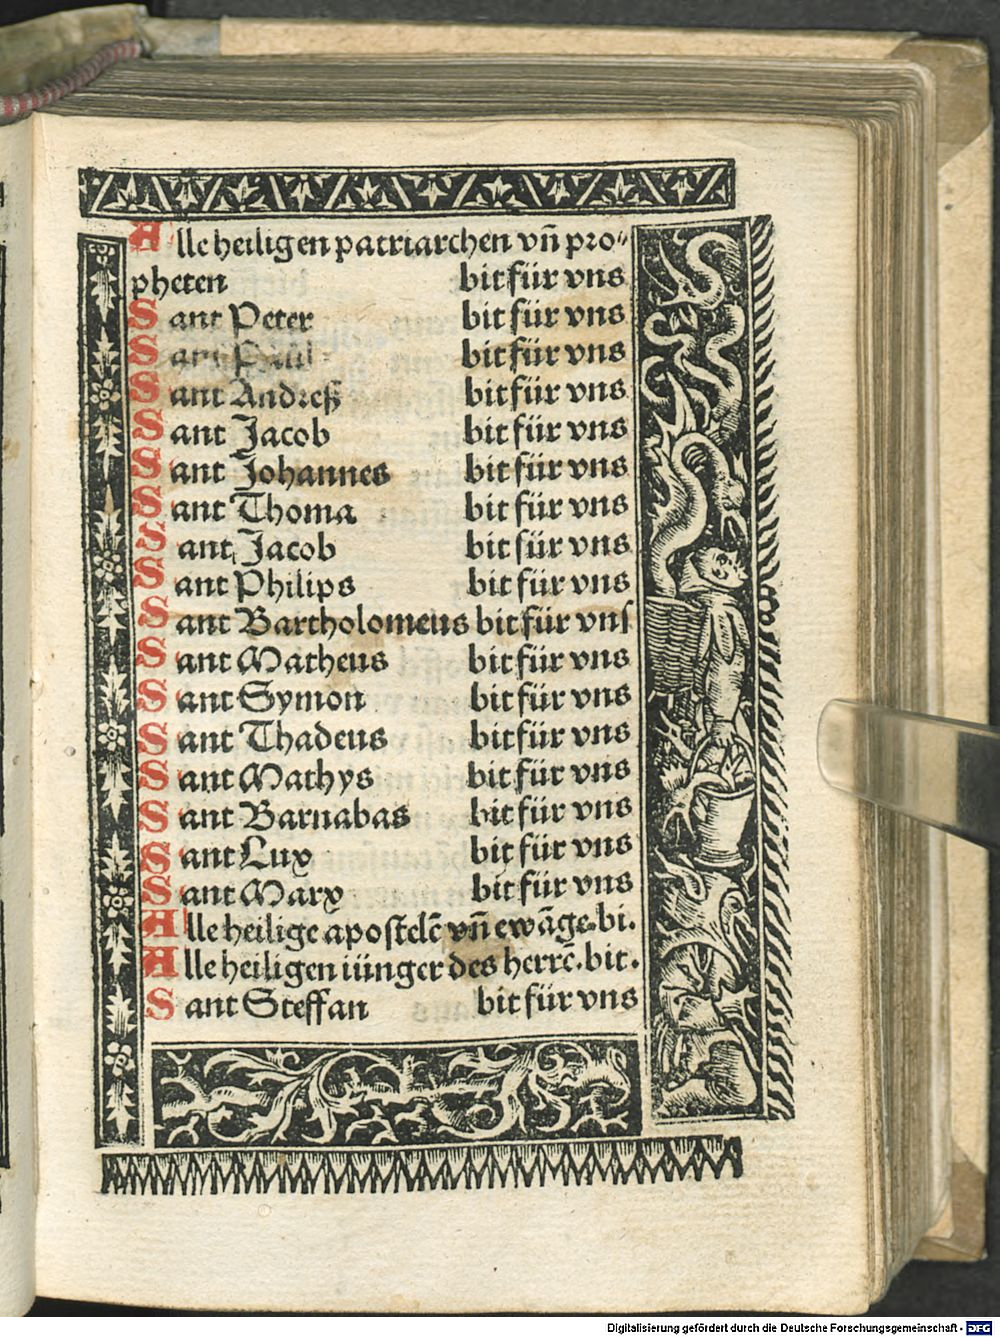 Alle heiligen patriarchen vñ pro⸗
pheten bit für vns
Sant Peter bit für vns
Sant Paul bit für vns
Sant Andreß bit für vns
Sant Jacob bit für vns
Sant Johannes bit für vns
Sant Thoma bit für vns
Sant Jacob bit für vns
Sant Philips bit für vns
Sant Bartholomeus bit für vnſ
Sant Matheus bit für vns
Sant Symon bit für vns
Sant Thadeus bit für vns
Sant Mathys bit für vns
Sant Barnabas bit für vns
Sant Lux bit für vns
Sant Marx bit für vns
Alle heilige apoſtelē vñ ewāge. bi.
Alle heiligen iünger des herrē. bit.
Sant Steffan bit für vns
Digitalisierung gefördert durch die Deutsche Forschungsgemeinschaft - DFG